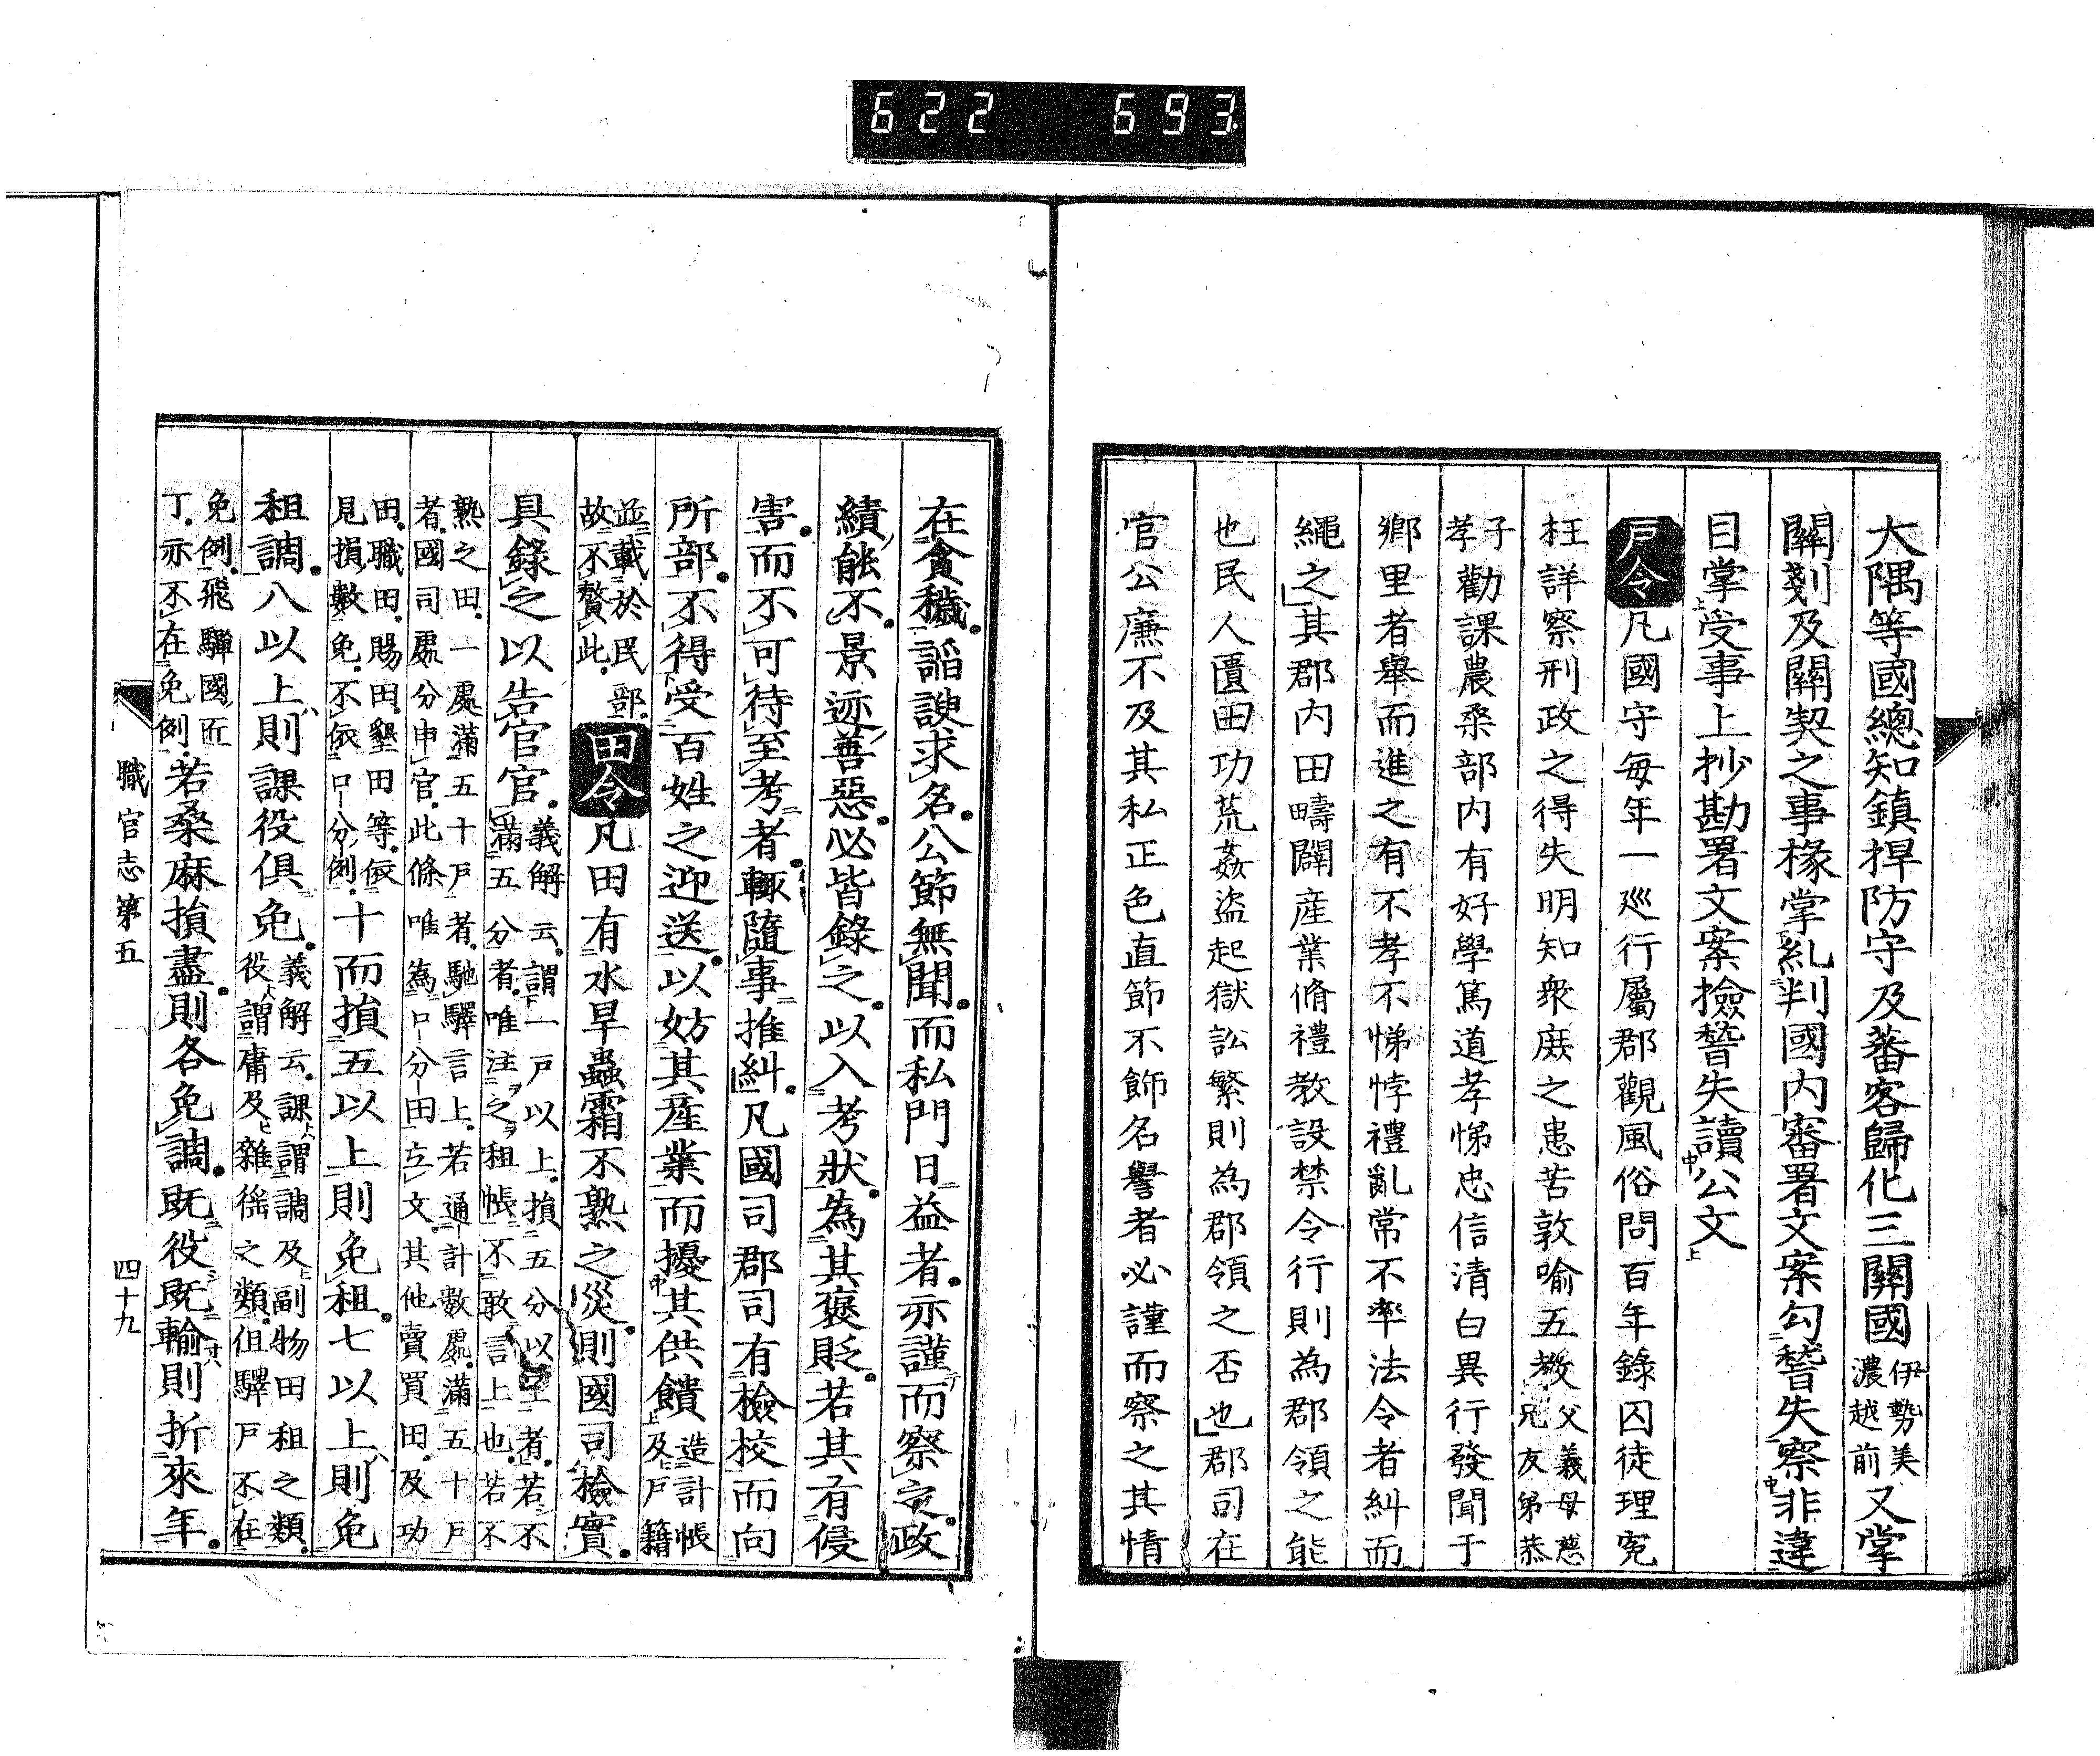 622 693
大隅等國總知鎮捍防守及蕃客歸化三關國伊勢美濃越前又掌
關剗及關契之事掾掌糺判國内審署文案勾稽失察非違
目掌受事上抄勘署文案撿稽失讀公文
戸令凡國守毎年一巡行屬郡觀風俗問百年錄囚徒理寃
枉詳察刑政之得失明知衆庻之患苦敦喩五教父義母慈兄友弟恭
子孝勸課農桑部内有好學篤道孝悌忠信清白異行發聞于
郷里者舉而進之有不孝不悌悖禮亂常不率法令者糾而
繩之其郡内田疇闢産業脩禮教設禁令行則為郡領之能
也民人匱田功荒姦盗起獄訟繁則為郡領之否也郡司在
官公廉不及其私正色直節不飾名譽者必謹而察之其情
在貪穢謟諛求名公節無聞而私門日益者亦謹而察之政
績能不景迹善惡必皆錄之以入考狀為其褒貶若其有侵
害而不可待至考者輙隨事推糾凡國司郡司有檢校而向
所部不得受百姓之迎送以妨其産業而擾其供饋及造計帳戸籍
並載於民部故不贅此田令凡田有水旱蟲霜不熟之災則國司檢實
具錄之以告官官義解云謂一戸以上損五分以上者若不滿五分者唯注之租帳不敢言上也若不
熟之田一處滿五十戸者馳驛言上若通計數處滿五十戸者國司處分申官此條唯為口分田立文其他賣買田及功
田職田賜田墾田等依見損數免不依口分例十而損五以上則免租七以上則免
租調八以上則課役俱免義解云課謂調及副物田租之類役謂庸及雜徭之類但驛戸不在
免例飛驒國匠丁亦不在免例若桑麻損盡則各免調既役既輸則折來年
職官志第五
四十九